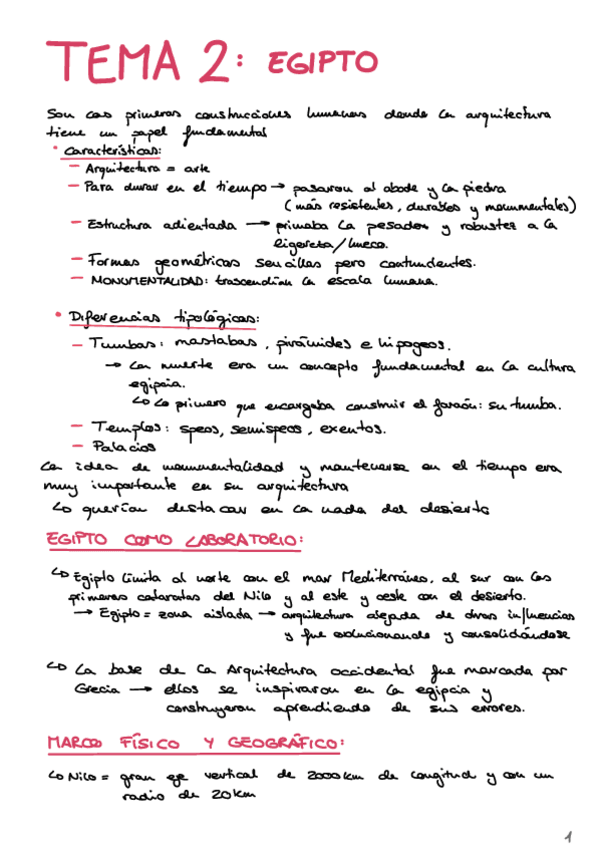 TEMA 2: EGIPTO
Son las primeras construcciones humanas donde la arquitectura
tiene un papel fundamental
• Características:
– Arquitectura = arte
– Para durar en el tiempo → pasaron al abode y la piedra
(más resistentes, durables y monumentales)
– Estructura adientada → primaba la pesadez y robustez a la
ligereza/hueco.
– Formas geométricas sencillas pero contundentes.
– MONUMENTALIDAD: trascendían la escala humana.
• Diferencias tipológicas:
– Tumbas: mastabas, pirámides e hipogeos.
→ La muerte era un concepto fundamental en la cultura
egipcia.
↳ Lo primero que encargaba construir el faraón: su tumba.
– Templos: speos, semispeos, exentos.
– Palacios
La idea de monumentalidad y mantenerse en el tiempo era
muy importante en su arquitectura
↳ querían destacar en la nada del desierto
EGIPTO COMO LABORATORIO:
↳ Egipto limita al norte con el mar Mediterráneo, al sur con las
primeras cataratas del Nilo y al este y oeste con el desierto.
→ Egipto = zona aislada → arquitectura alejada de otras influencias
y fue evolucionando y consolidándose
↳ La base de la Arquitectura occidental fue marcada por
Grecia → ellos se inspiraron en la egipcia y
construyeron aprendiendo de sus errores.
MARCO FÍSICO Y GEOGRÁFICO:
↳ Nilo = gran eje vertical de 2000km de longitud y con un
radio de 20km
1